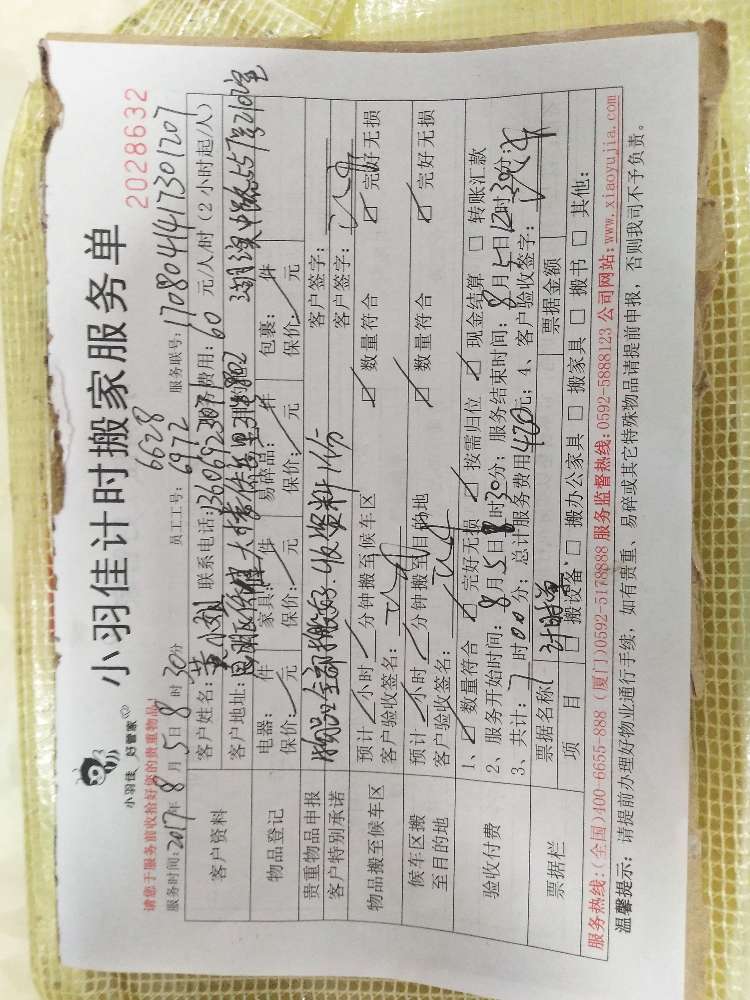 小羽佳计时搬家服务单
2028632
小羽佳 好管家
请您于服务前收拾好您的贵重物品!
6628
服务时间:2017年8月5日8时30分 员工工号:6972 服务联号:1708041417301207
客户资料
客户姓名: 联系电话: 服务费用:60元/人/时(2小时起/人)
客户地址:
物品登记
电器: 件 家具: 件 易碎品: 件 包裹: 件
保价: 元 保价: 元 保价: 元 保价: 元
贵重物品申报 客户签字:
客户特别承诺 物品全部搬好.收资料1份 客户签字:
物品搬至候车区
预计 小时 分钟搬至候车区 ☑ 数量符合 ☑ 完好无损
客户验收签名:
候车区搬至目的地
预计 小时 分钟搬至目的地 ☑ 数量符合 ☑ 完好无损
客户验收签名:
验收付费
1、☑ 数量符合 ☑ 完好无损 ☑ 按需归位 ☑ 现金结算 □ 转账汇款
2、服务开始时间:8月5日8时30分; 服务结束时间:8月5日12时30分;
3、共计: 时00分; 总计服务费用420元; 4、客户验收签字:
票据栏
票据名称 计时单 票据金额
项 目 □ 搬设备 □ 搬办公家具 □ 搬家具 □ 搬书 □ 其他:
服务热线:(全国)400-6655-888 (厦门)0592-5178888 服务监督热线:0592-5888123 公司网站:www.xiaoyujia.com
温馨提示: 请提前办理好物业通行手续, 如有贵重、易碎或其它特殊物品请提前申报, 否则我司不予负责。